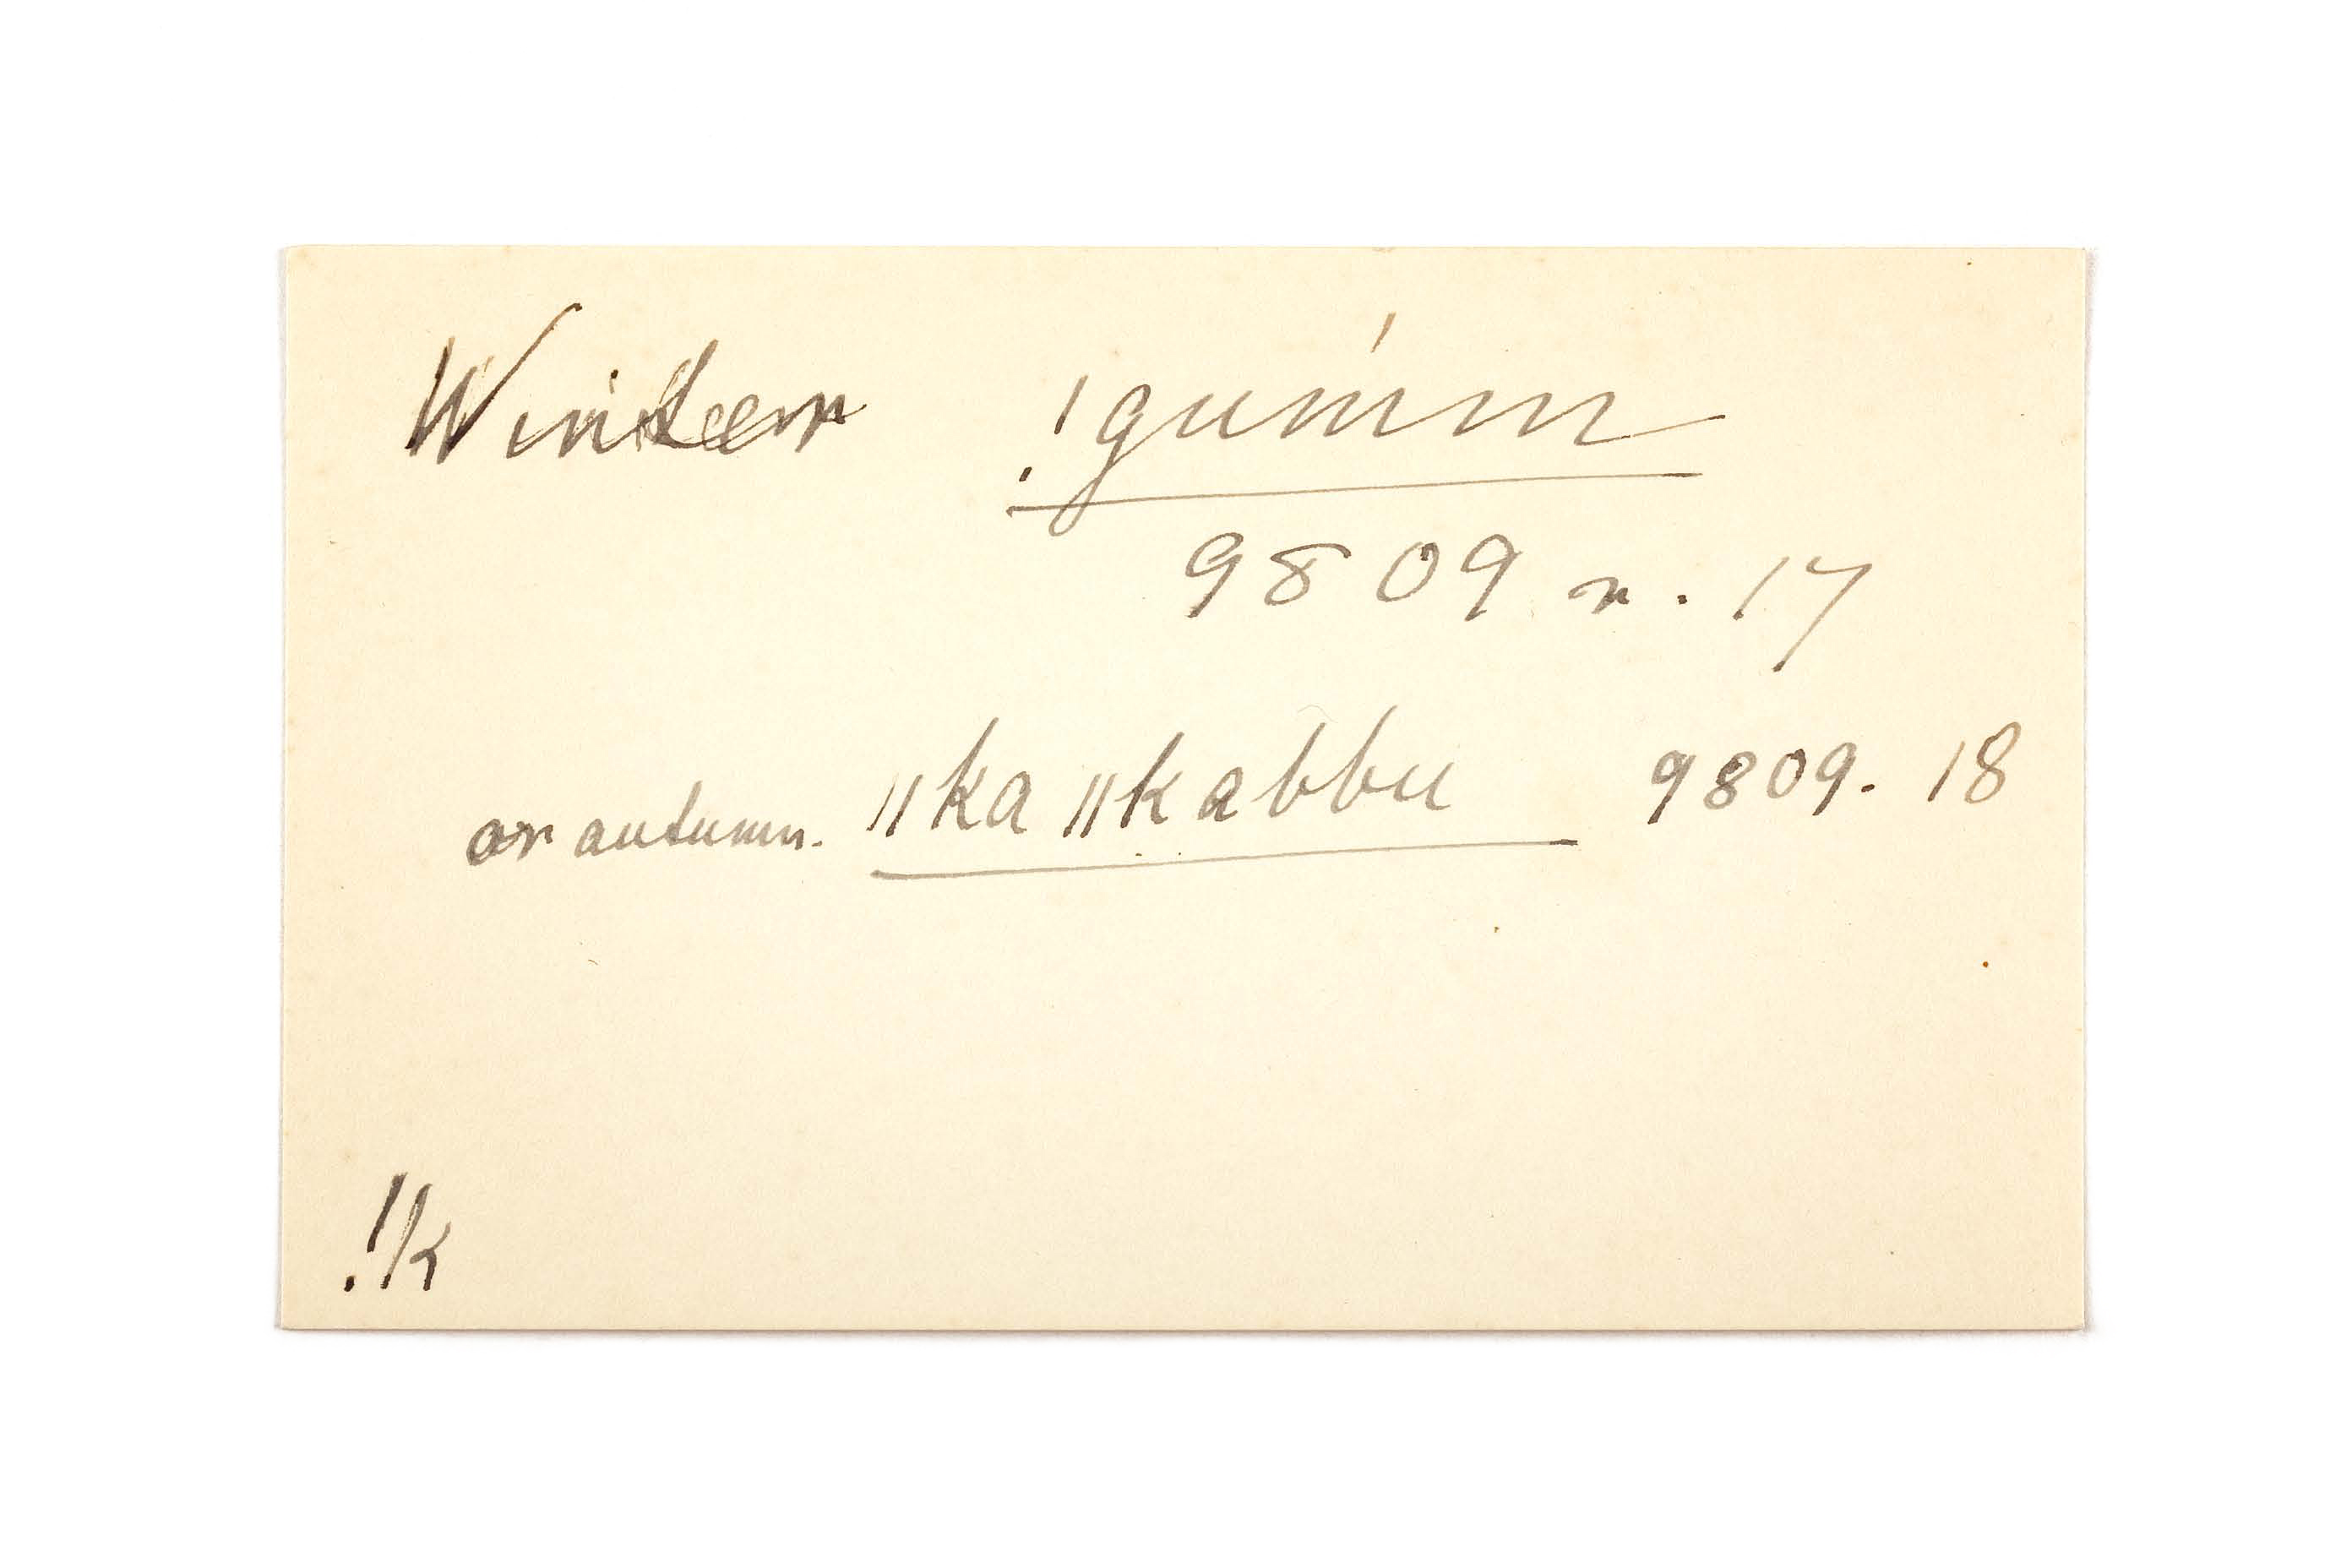 Winter !gúm̍m
9809 r. 17
or autumn. ǁka ǁkabbu 9809. 18
!k